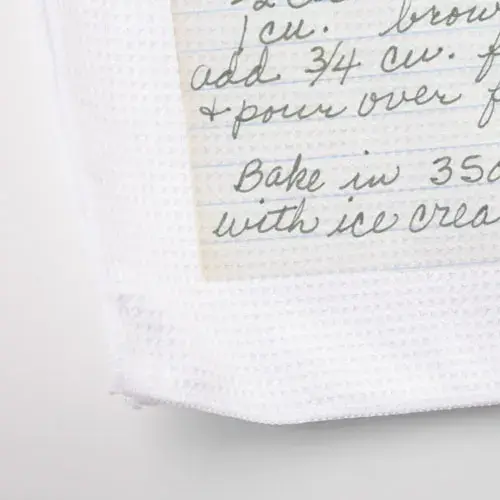 1 cu. brow
add 3/4 cu. f
+ pour over f
Bake in 350
with ice crea